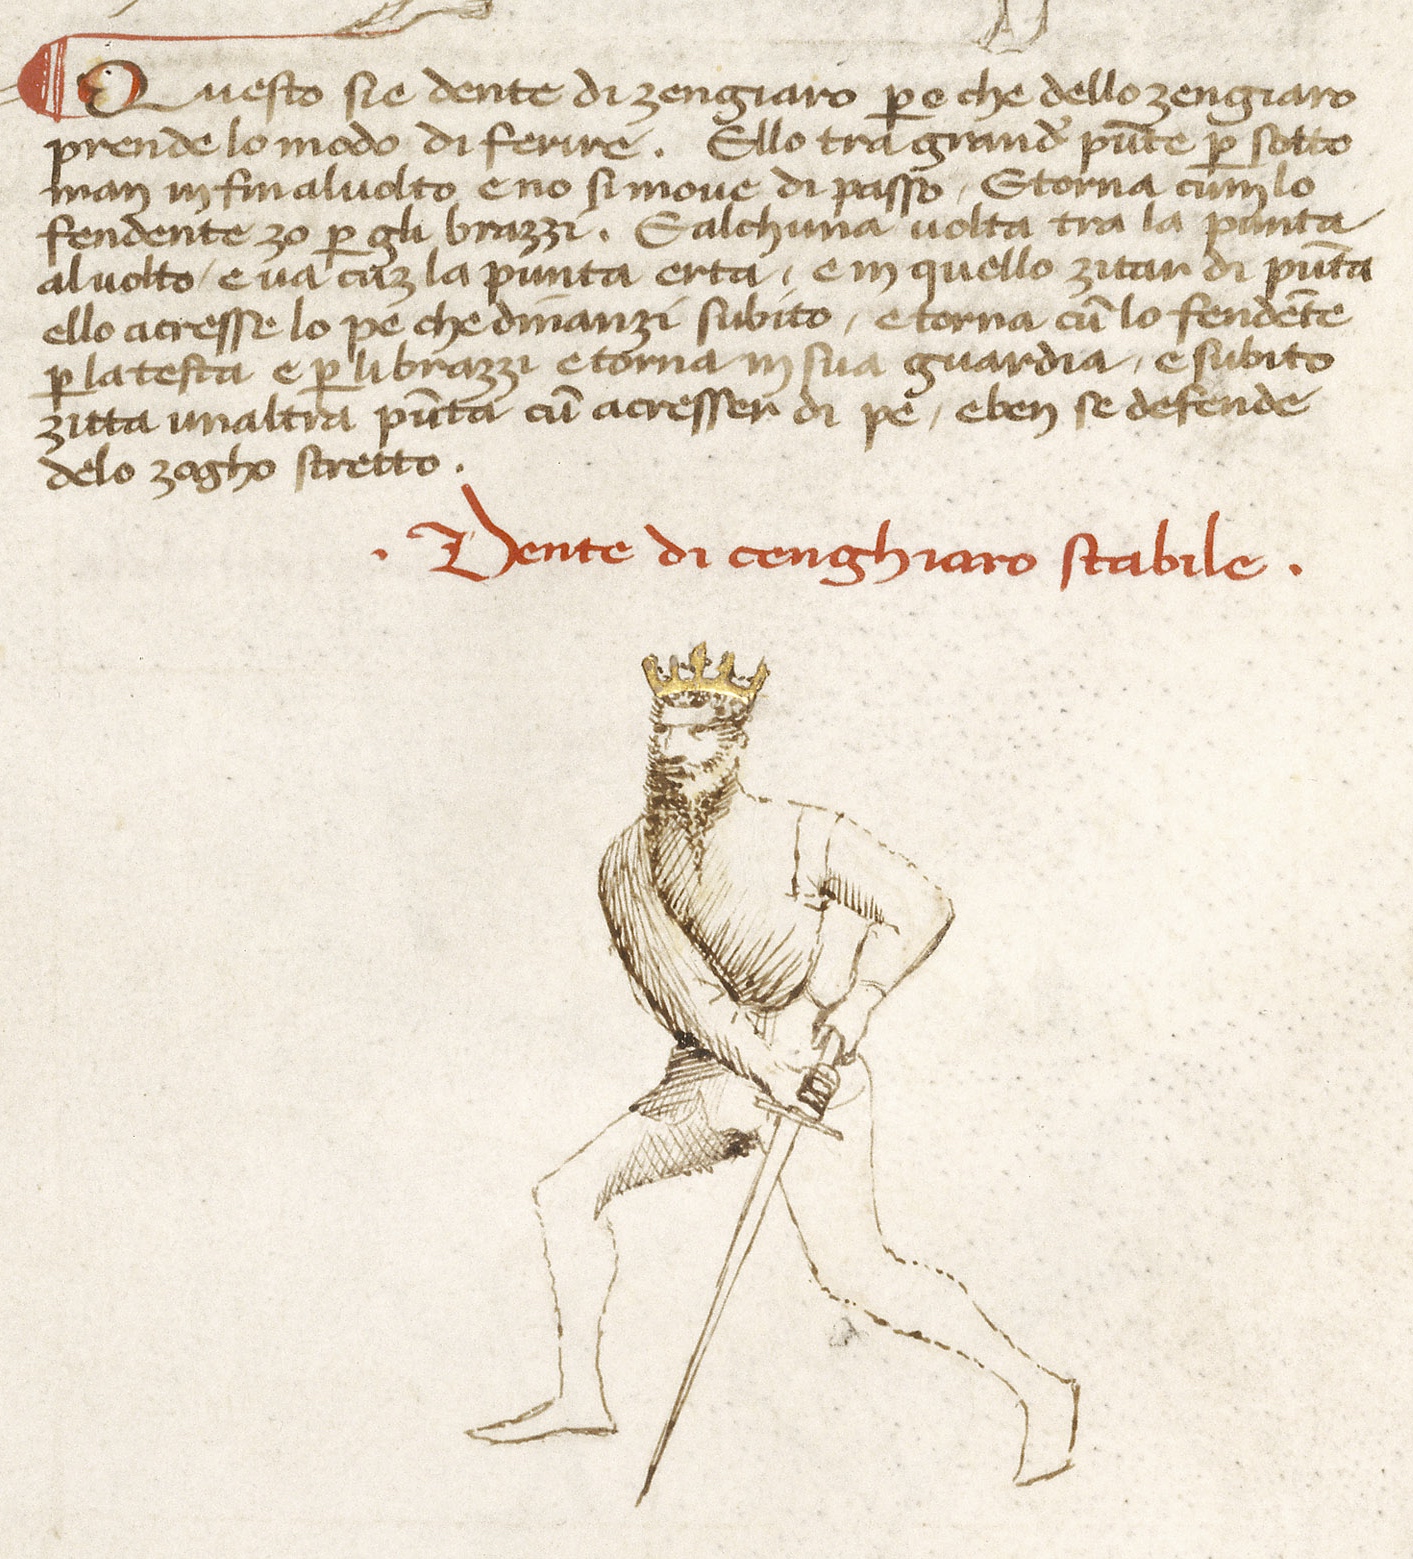 Questo sie dente di zengiaro p̄ o che dello zengiaro
prende lo modo di ferire . Ello tra grand̄ pūte p̄ sotto
man in fin al uolto e no si moue di passo / E torna cum lo
fendente zo p̄ gli brazzi . E alchuna uolta tra la punta
al uolto / e ua cuz la punta erta / e in quello zitar di pūta
ello acresse lo pe che dinanzi subito / e torna cū lo fendēte
p̄ la testa e p̄ li brazzi e torna in sua guardia / e subito
zitta unaltra pūta cū acresser di pe / e ben se defende
delo zogho stretto .
. Dente di cenghiaro stabile .